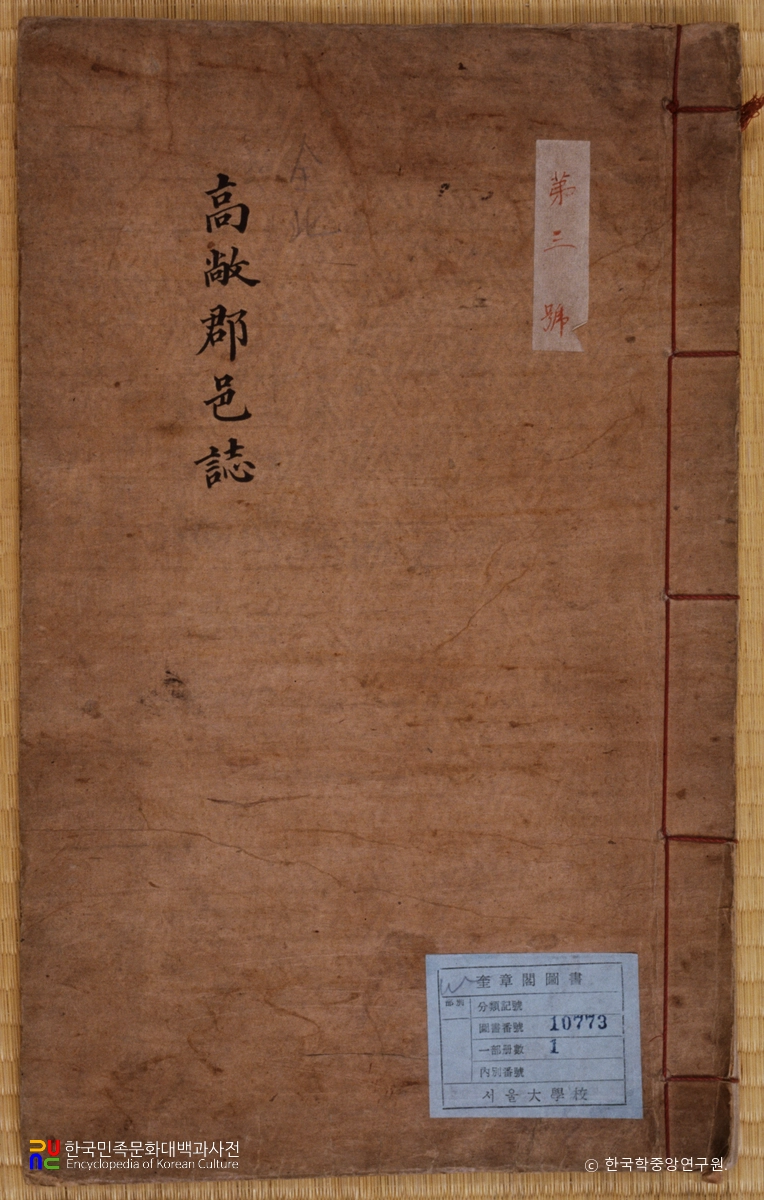 第三號
高敞郡邑誌
全北
奎章閣圖書
部別
分類記號
圖書番號 10773
一部冊數 1
內別番號
서울大學校
한국민족문화대백과사전
Encyclopedia of Korean Culture
© 한국학중앙연구원